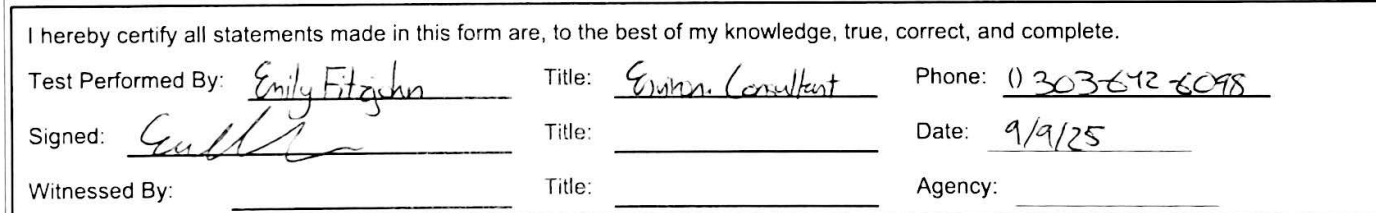 I hereby certify all statements made in this form are, to the best of my knowledge, true, correct, and complete.
Test Performed By: Emily Fitzjohn Title: Environ. Consultant Phone: () 303-642-6098
Signed: Title: Date: 9/9/25
Witnessed By: Title: Agency: